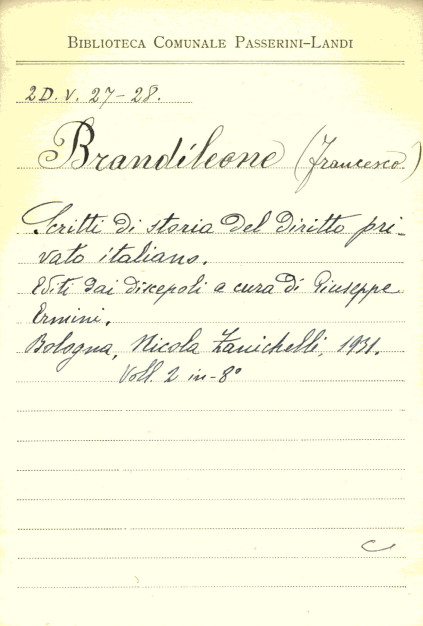 BIBLIOTECA COMUNALE PASSERINI-LANDI
2D. V. 27-28.
Brandileone (Francesco)
Scritti di storia del diritto pri-
vato italiano.
Editi dai discepoli a cura di Giuseppe
Ermini.
Bologna, Nicola Zanichelli, 1931.
Voll. 2 in-8°
C